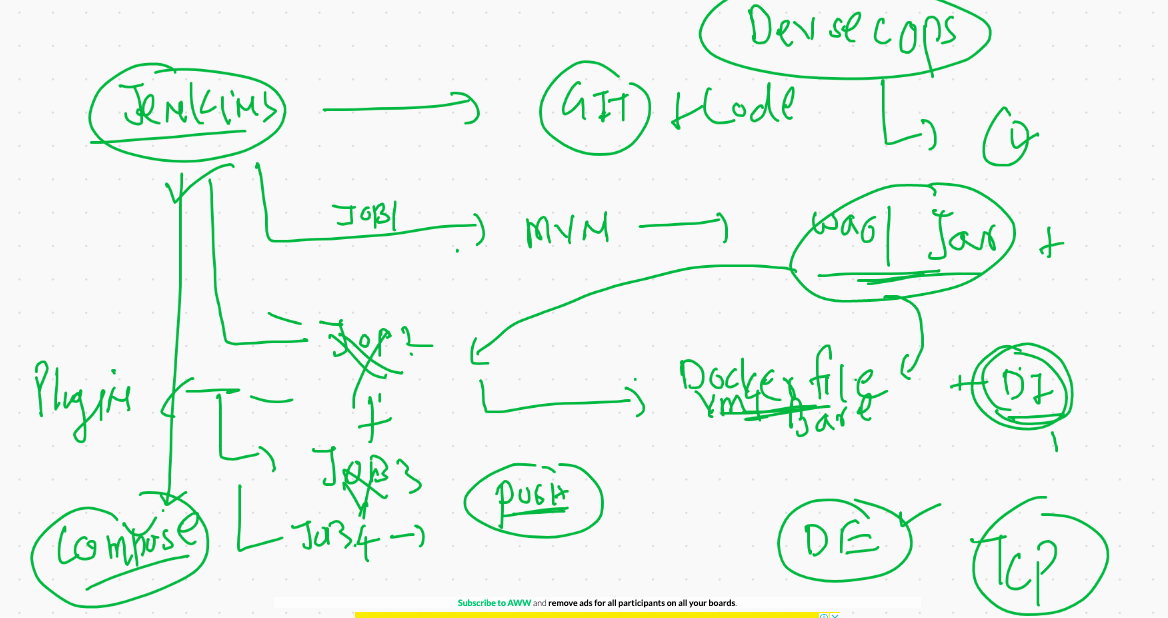 Devsecops
Jenkins
GIT
JOB1
MVM
war | Jar +
JOB2
Plugin
Dockerfile
+ DI
JOB3
PUSH
JOB4
Compose
DE
TCP
Subscribe to AWW and remove ads for all participants on all your boards.